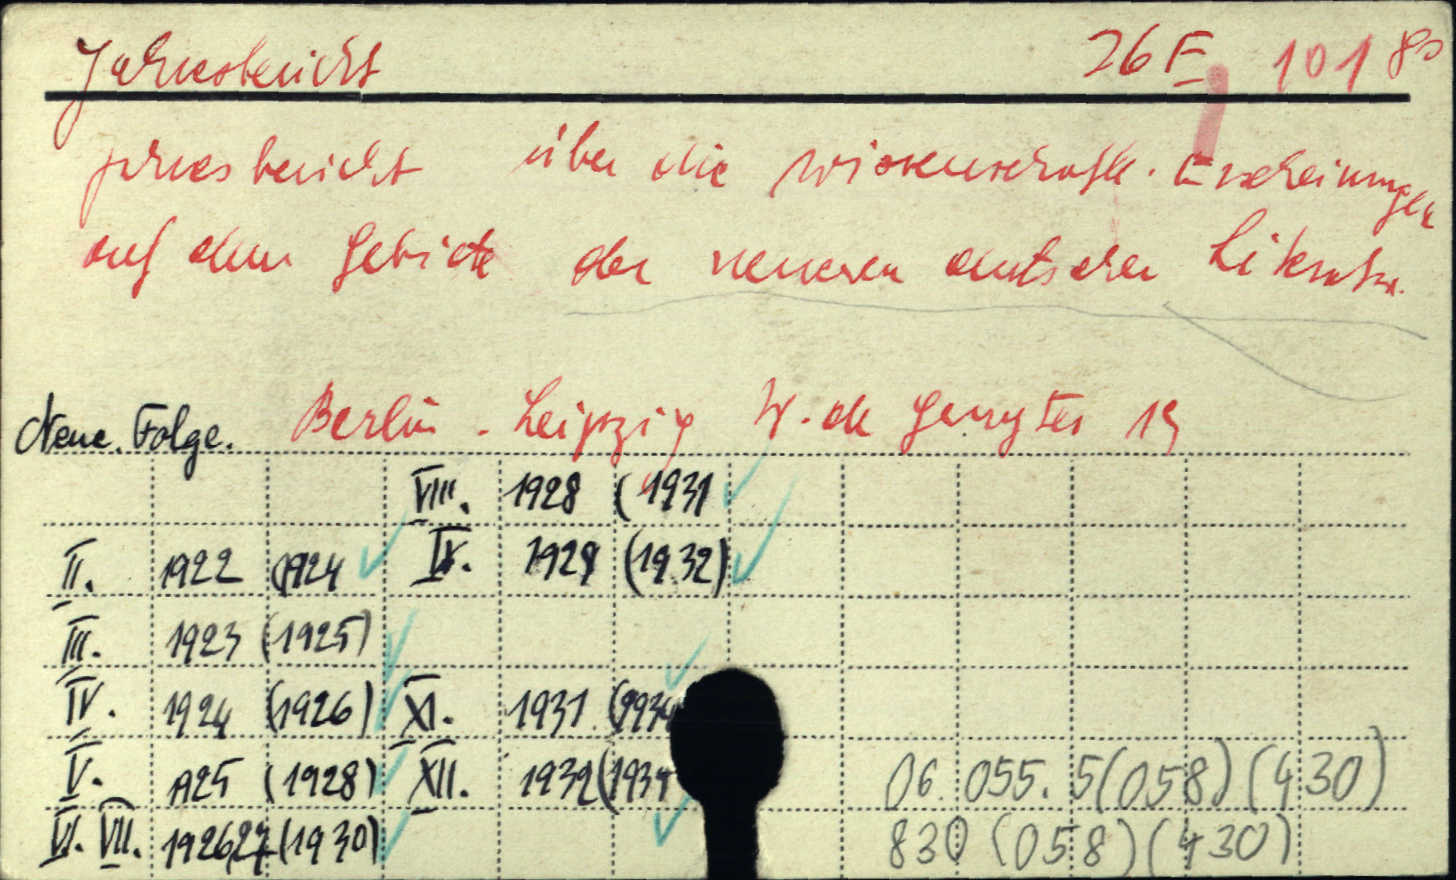 Jahresbericht 26 F 101 80
Jahresbericht über die wissenschaftl. Erscheinungen
auf dem Gebiete der neueren deutschen Literatur.
Neue Folge. Berlin - Leipzig W. de Gruyter 19
VIII. 1928 (1931
II. 1922 (1924 IX. 1929 (1932)
III. 1923 (1925)
IV. 1924 (1926) XI. 1931 (1934
V. 1925 (1928) XII. 1932 (1934
VI. VII. 1926/27 (1930)
06.055.5(058)(430)
830(058)(430)